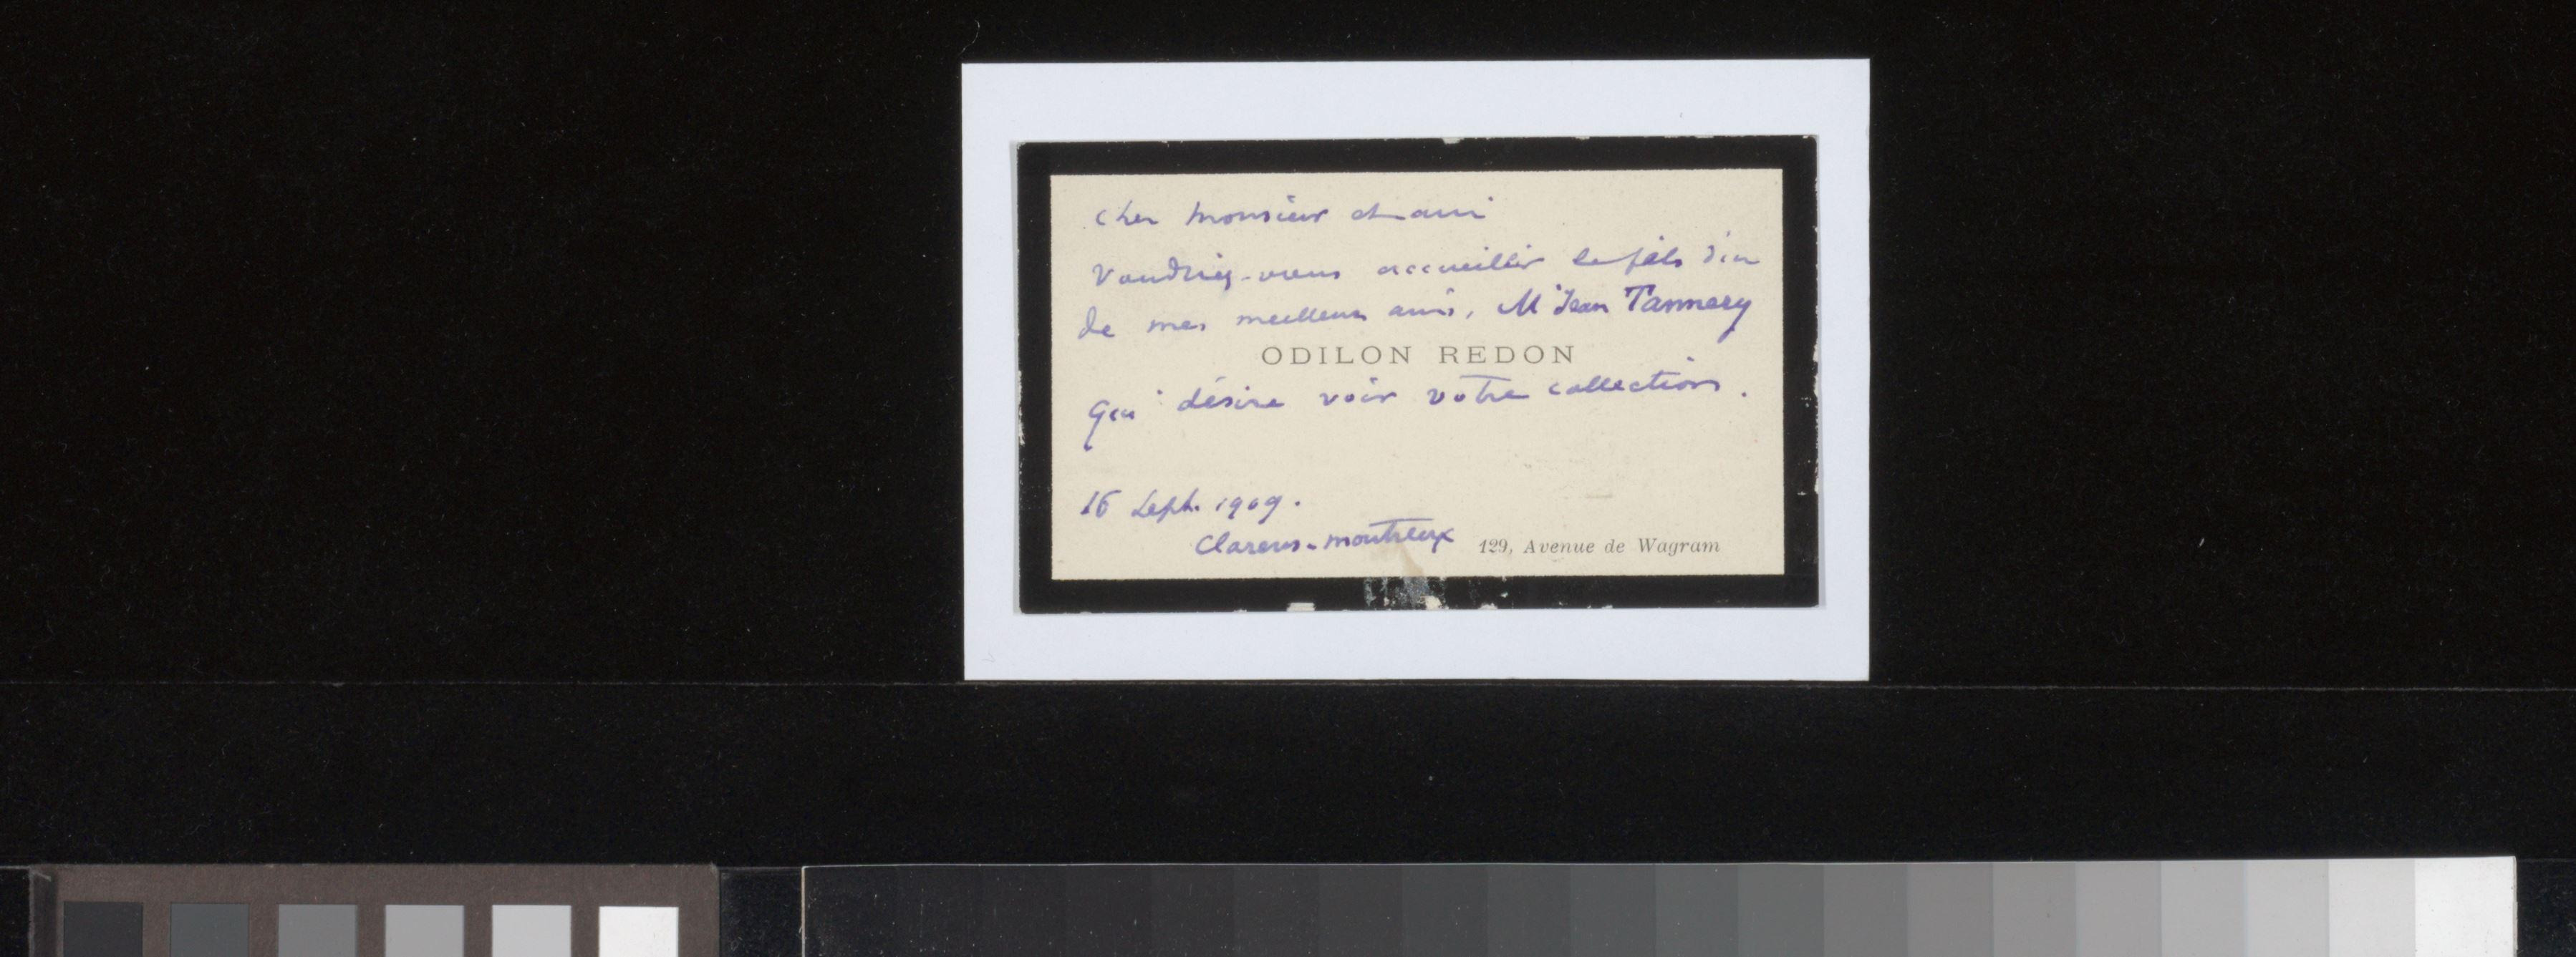 Cher Monsieur et ami
Voudriez-vous accueillir le fils d'un
de mes meilleurs amis, M Jean Tannery
ODILON REDON
qui désire voir votre collection.
16 Sept. 1909.
Clarens-montreux
129, Avenue de Wagram